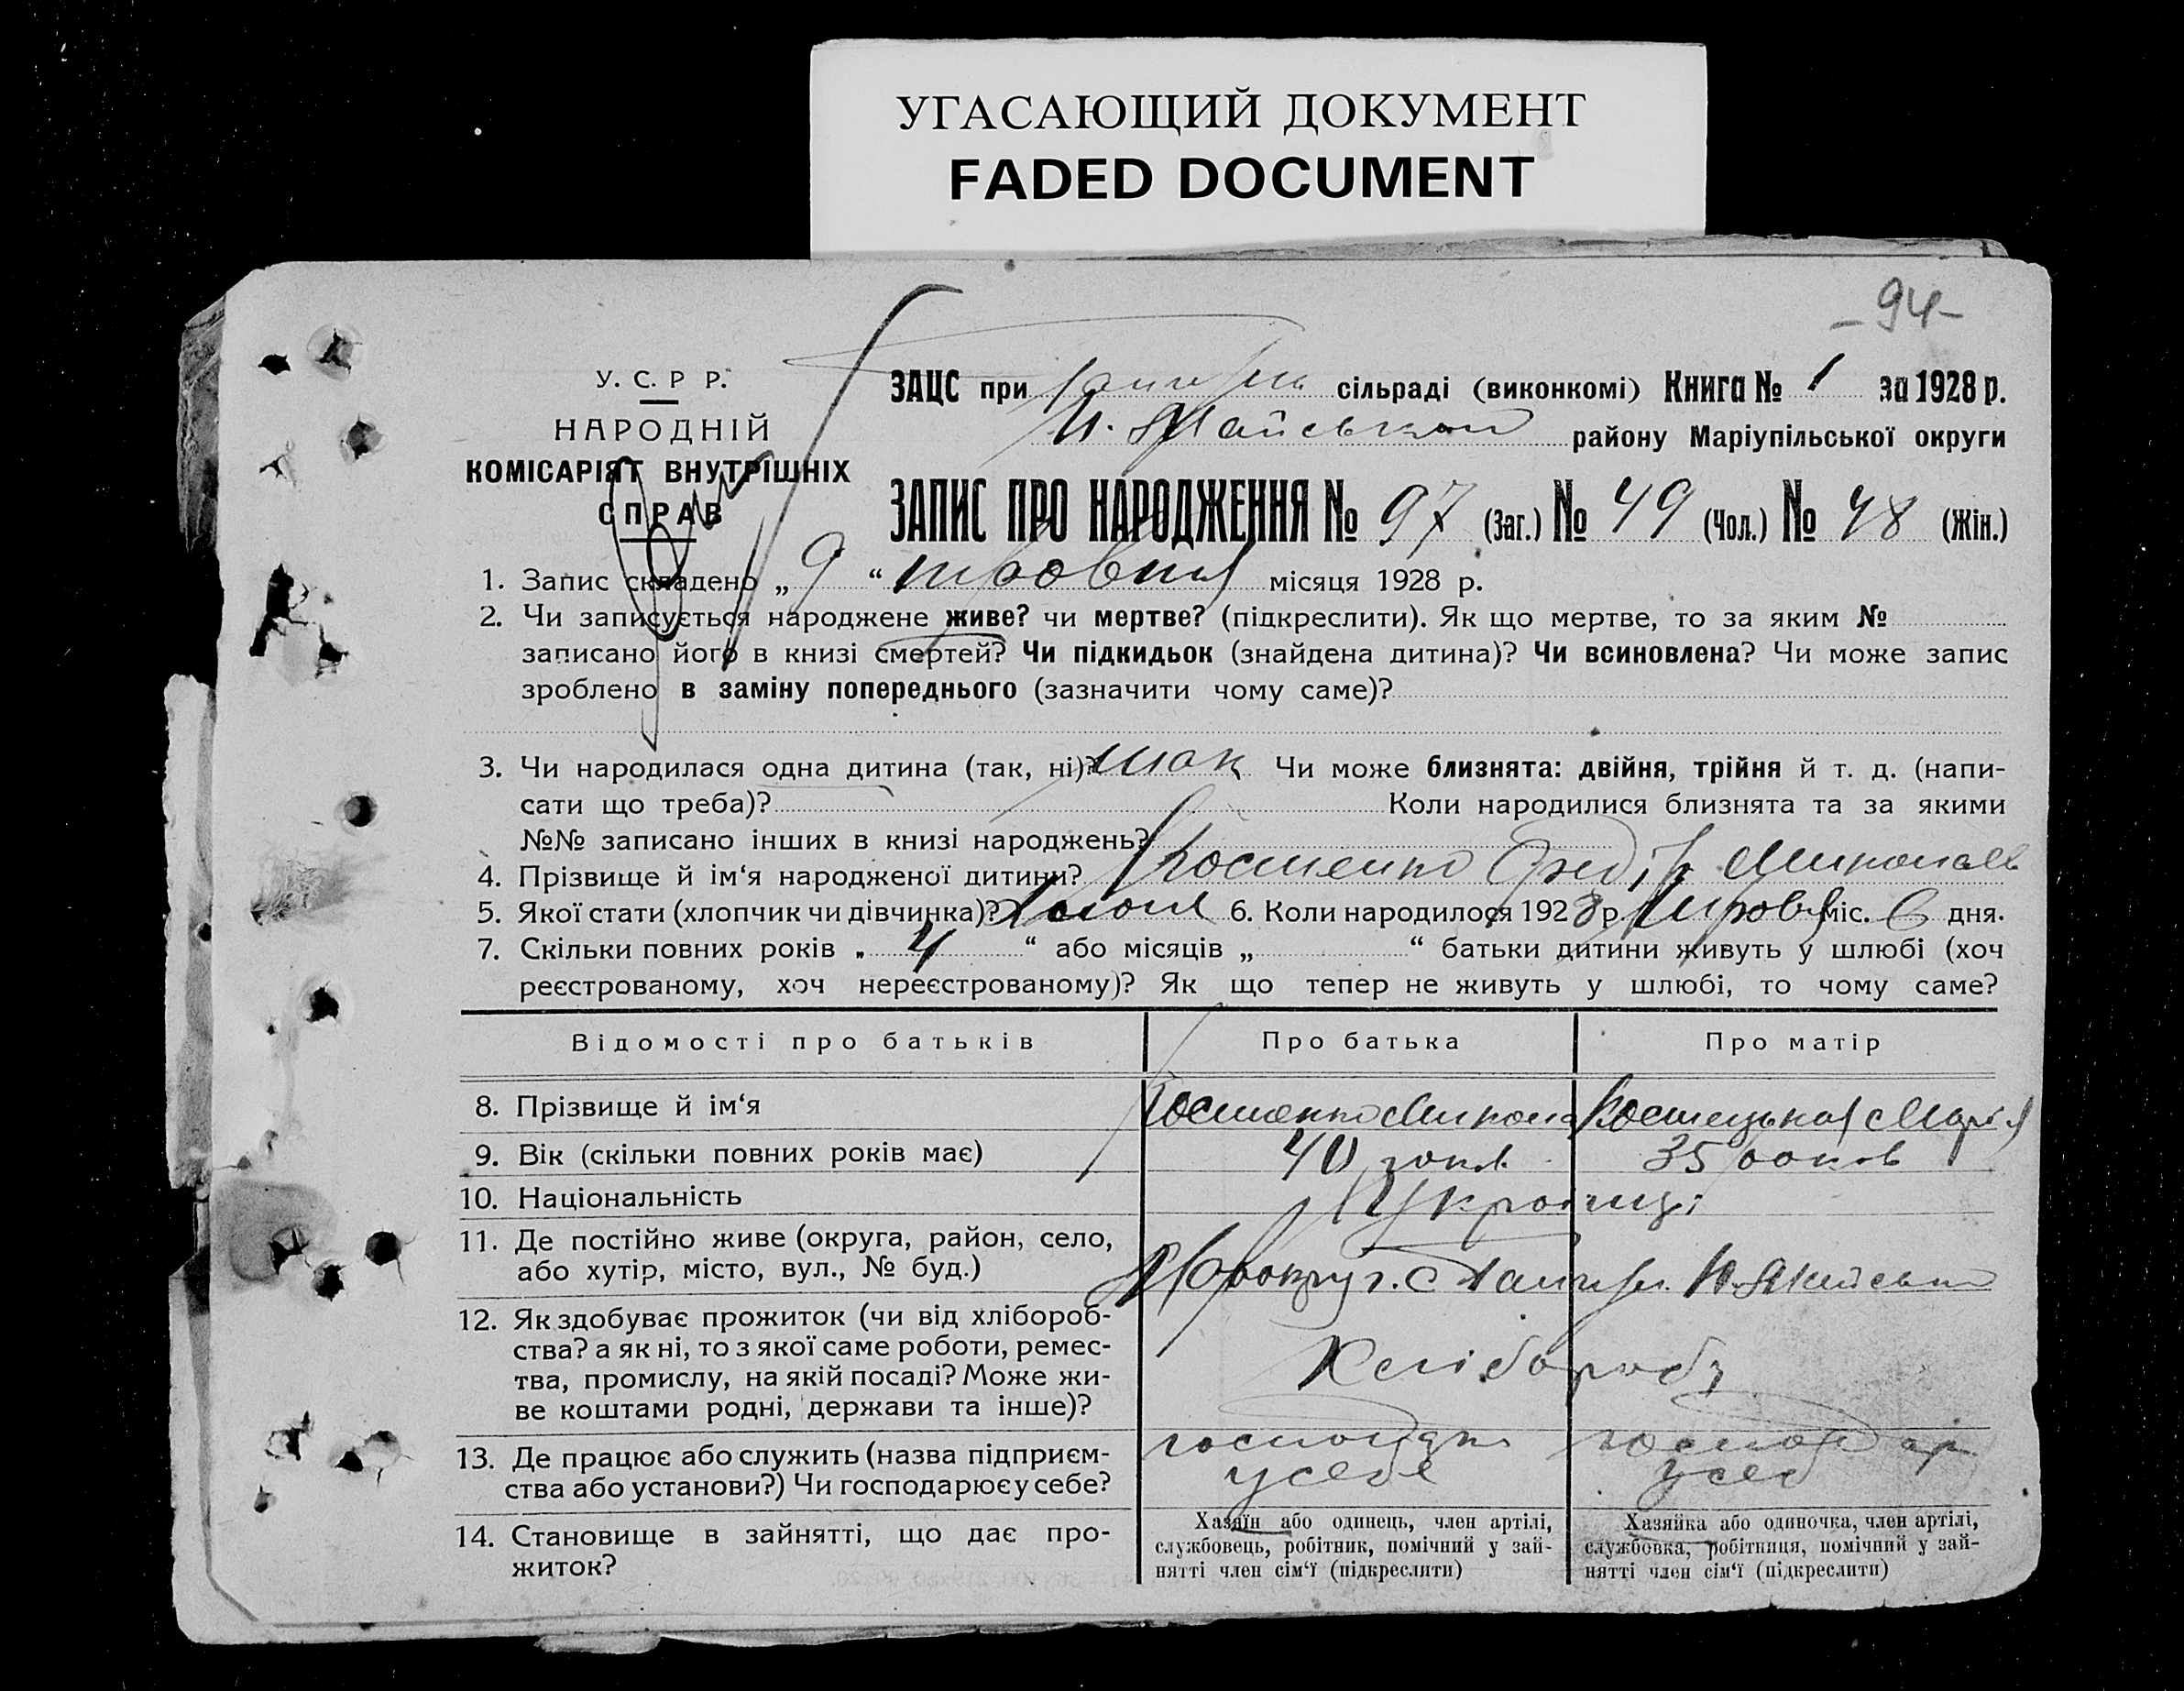 УГАСАЮЩИЙ ДОКУМЕНТ
FADED DOCUMENT
– 94 –
У. С. Р Р.
НАРОДНІЙ
КОМІСАРІЯТ ВНУТРІШНІХ
СПРАВ
ЗАЦС при сільраді (виконкомі) Книга № 1 за 1928 р.
району Маріупільської округи
ЗАПИС ПРО НАРОДЖЕННЯ № 97 (Заг.) № 49 (Чол.) № 48 (Жін.)
1. Запис складено „ 9 “ травня місяця 1928 р.
2. Чи записується народжене живе? чи мертве? (підкреслити). Як що мертве, то за яким №
записано його в книзі смертей? Чи підкидьок (знайдена дитина)? Чи всиновлена? Чи може запис
зроблено в заміну попереднього (зазначити чому саме)?
3. Чи народилася одна дитина (так, ні)? так Чи може близнята: двійня, трійня й т. д. (напи-
сати що треба)? Коли народилися близнята та за якими
№№ записано інших в книзі народжень?
4. Прізвище й ім‘я народженої дитини? Костенко
5. Якої стати (хлопчик чи дівчинка)? 6. Коли народилося 1928 р. міс. 6 дня.
7. Скільки повних років „ 4 “ або місяців „ “ батьки дитини живуть у шлюбі (хоч
реєстрованому, хоч нереєстрованому)? Як що тепер не живуть у шлюбі, то чому саме?
Відомості про батьків Про батька Про матір
8. Прізвище й ім‘я Костенко Микола Марія
9. Вік (скільки повних років має) 40 років 35 років
10. Національність Українці
11. Де постійно живе (округа, район, село,
або хутір, місто, вул., № буд.)
12. Як здобуває прожиток (чи від хлібороб-
ства? а як ні, то з якої саме роботи, ремес-
тва, промислу, на якій посаді? Може жи-
ве коштами родні, держави та інше)?
Хлібороби
13. Де працює або служить (назва підприєм-
ства або установи?) Чи господарює у себе?
у себе
14. Становище в зайнятті, що дає про-
житок?
Хазяїн або одинець, член артілі,
службовець, робітник, помічний у зай-
нятті член сім‘ї (підкреслити)
Хазяйка або одиночка, член артілі,
службовка, робітниця, помічний у зай-
нятті член сім‘ї (підкреслити)